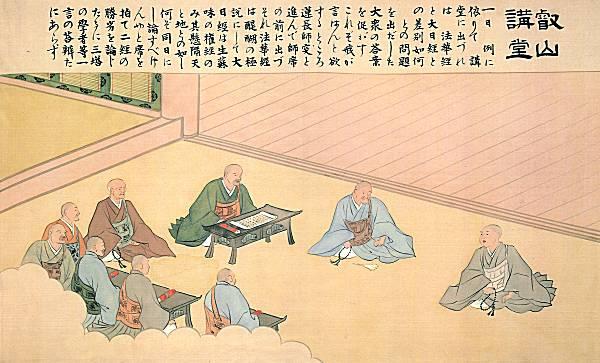 叡山
講堂
一日 例に
依りて 講
堂に出づれ
は 法華經
と大日經と
の差別如何
との問題
を出だし
大衆の答案
を促す
これぞ我が
言はんと欲
するところ
蓮長師
進んで師席
の前に出づ
それ法華經
は醍醐の極
説にして大
日經は生蘇
味の權經の
み其懸隔天
と地との如し
何そ同日に
論すべけ
んやと席を
拍て二經の
勝劣を論し
たるに三塔
の學者等一
言の答辯だ
にあらず